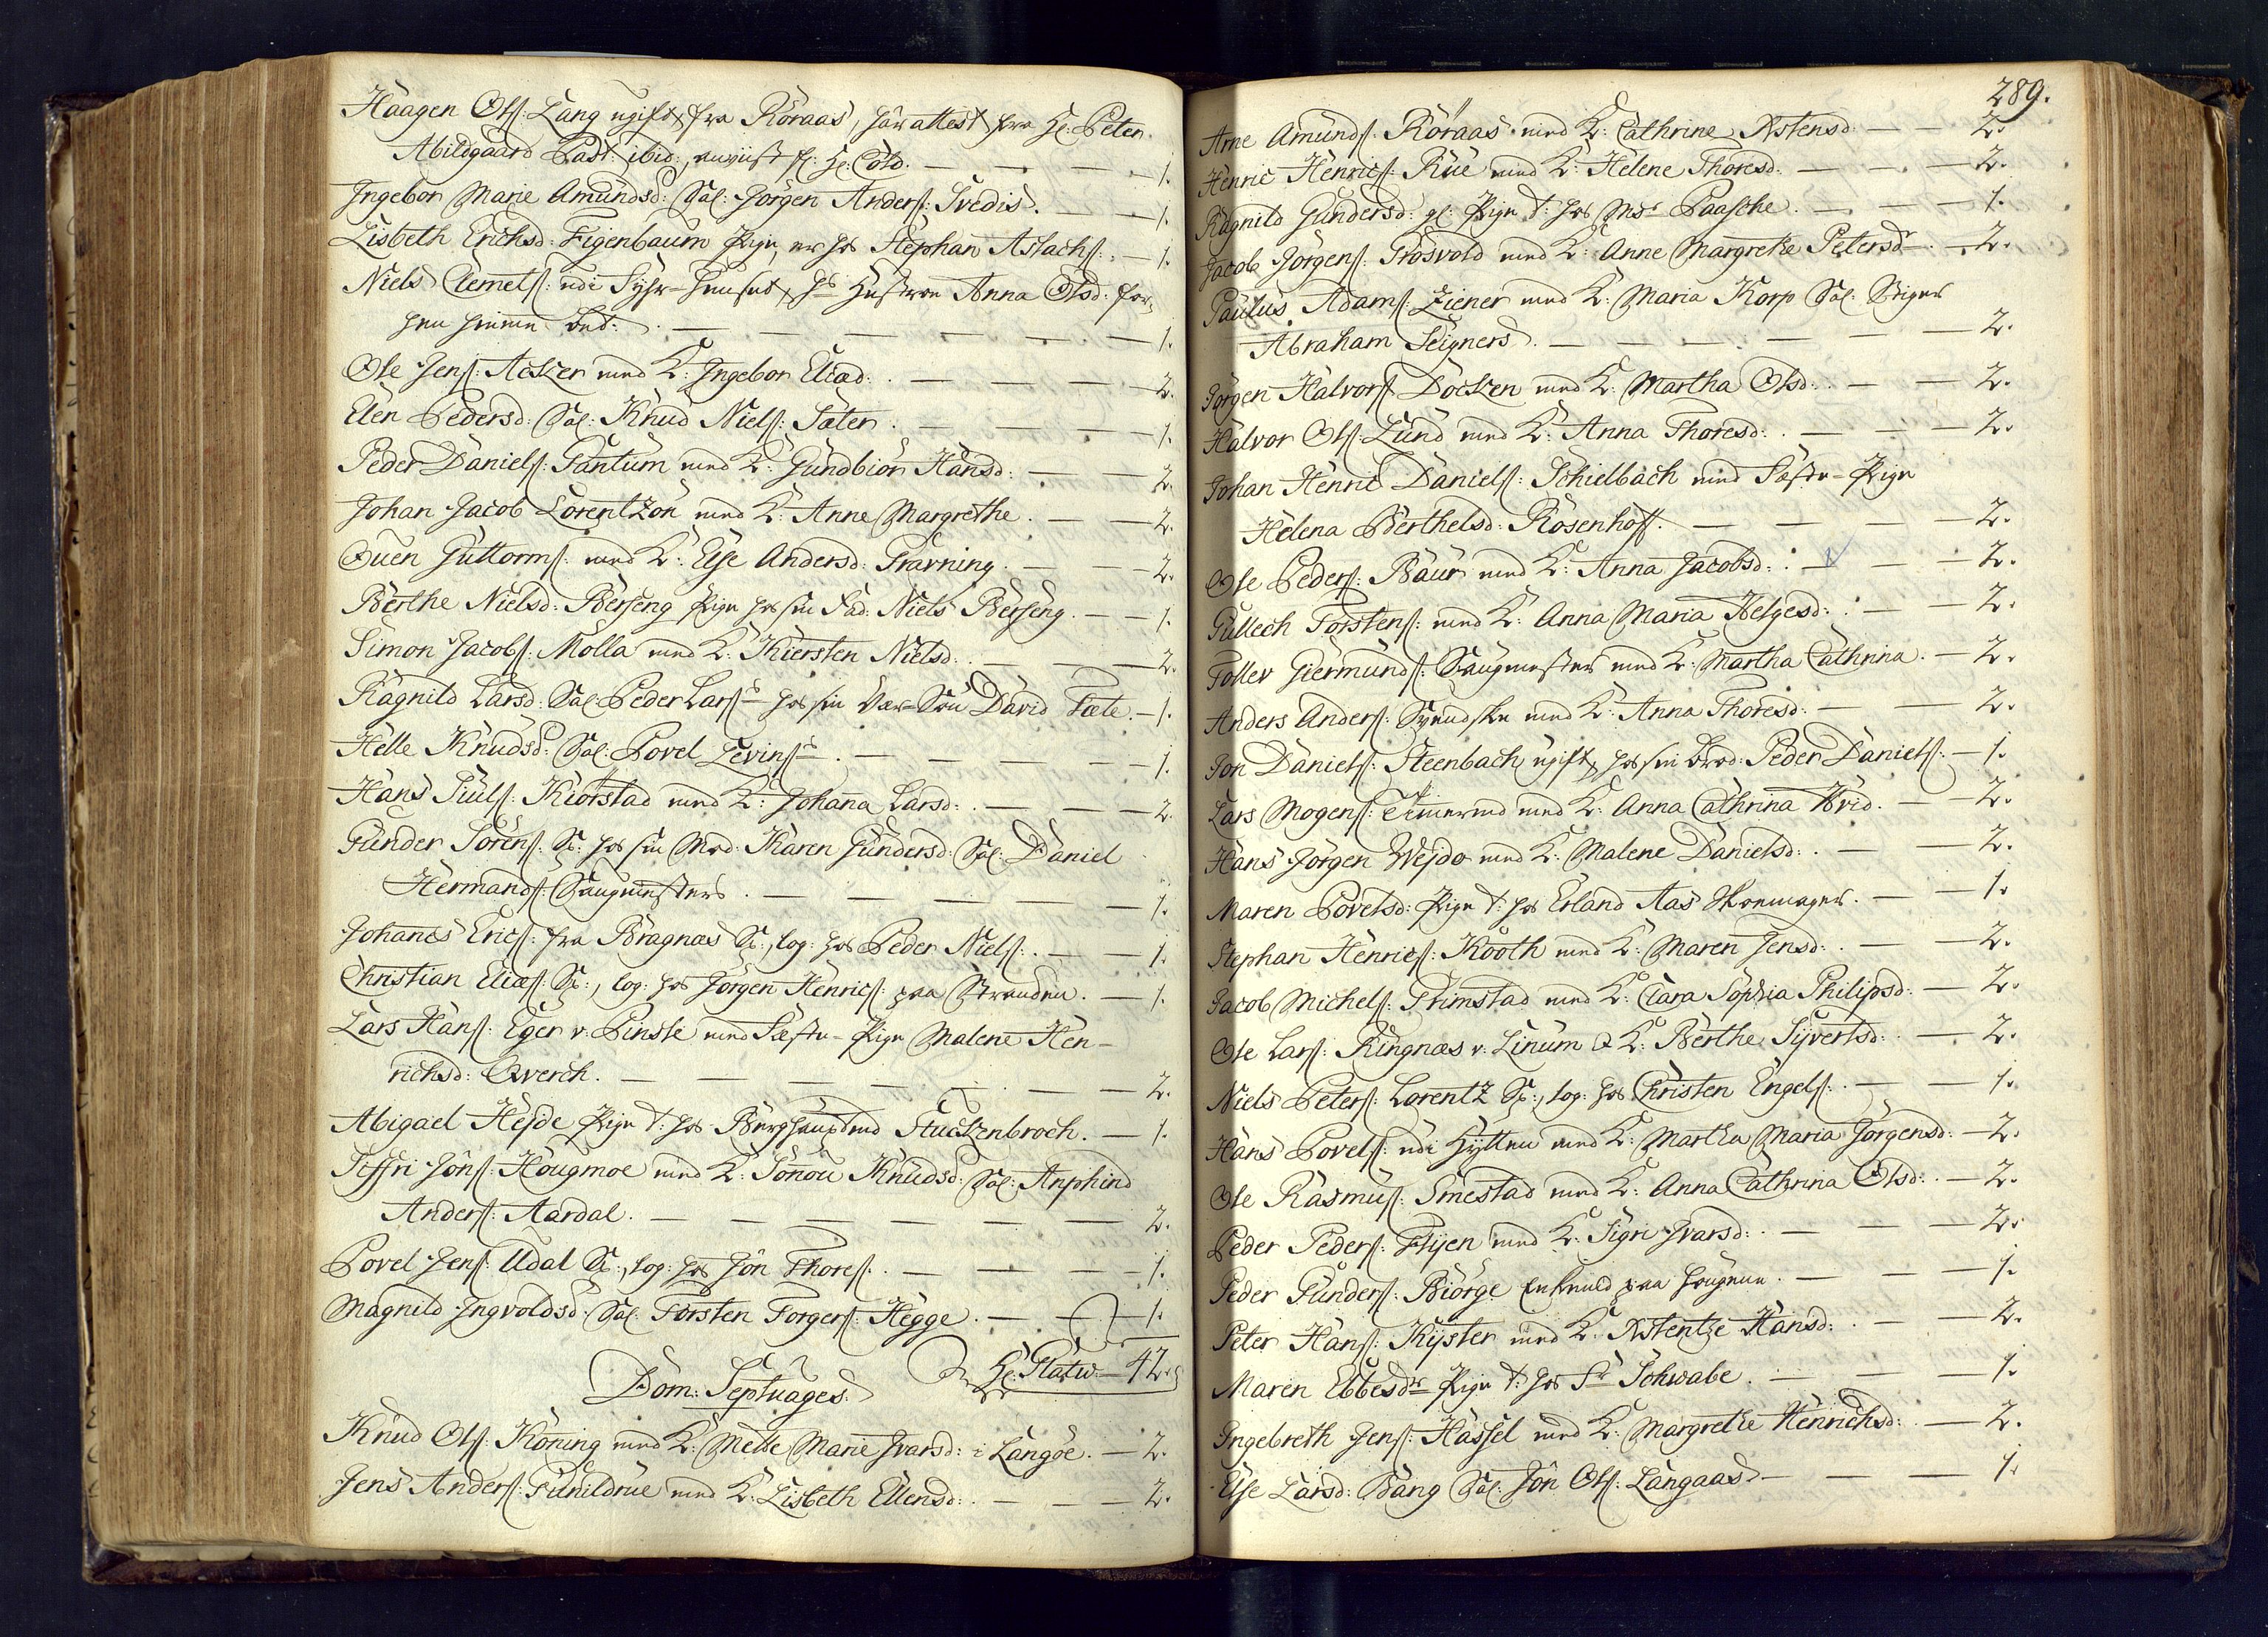 Haagen Ols: Lang ugift, fra Röraas, har attest fra Hr: Peter
Abildgaard Past: ibid:, anviist fl: Hr: Cold. — — — — 1.
Ingebor Marie Amundsd: Sal: Jörgen Anders: Svedis. — — 1.
Lisbeth Erichsd: Figenbaum Pige, er hos Stephan Aslachs: . — 1.
Niels Clemets: udi Fyhr-huuset, hs Hustroe Anna Olsd: for
hen hiemme bet: . — — — — — — 1.
Ole Jens: Acker med K: Ingebor Eliæd: . — — — 2.
Elen Pedersd: Sal: Knud Niels: Sæter. — — — 1.
Peder Daniels: Fantum med K: Gundbiör Hansd: . — — 2.
Johan Jacob Lorentzon med K: Anne Margrethe. — — 2.
Ouen Guttorms: med K: Else Andersd: Gravning. — — 2.
Berthe Nielsd: Berseng Pige hos sin Fad: Niels Berseng. — — 1.
Simon Jacobs: Molla med K: Kiersten Nielsd: . — — — 2.
Ragnild Larsd: Sal: Peder Lars: hos sin Vær-Sön David Fæte. — 1.
Helle Knudsd: Sal: Povel Levins: . — — — — — 1.
Hans Juuls: Kiörstad med K: Johana Larsd: . — — — 2.
Gunder Sörens: S: hos sin Mod: Karen Gundersd: Sal: Daniel
Hermands: Saugmesters. — — — — — 1.
Johanes Erics: fra Bragnæs S:, log: hos Peder Niels: . — — 1.
Christian Eliæs: S:, log: hos Jörgen Henrics: paa Stranden. — 1.
Lars Hans: Eger v: Pinsle med Fæste-Pige Malene Hen-
richsd: Qverch. — — — — — — 2.
Abigael Hejde Pige t: hos Berghauptmd Stuckenbroch. — 1.
Siffri Jöns: Hougmoe med K: Sönou Knudsd: Sal: Anphind
Anders: Aardal. — — — — — — 2.
Povel Jens: Udal S:, log: hos Jön Thores: . — — — 1.
Magnild Ingvoldsd: Sal: Torsten Torgers: Hegge. — — 1.
Hr: Flatw: — 42.
Dom: Septuages:
Knud Ols: Köning med K: Mette Marie Ivarsd: i Langöe. — 2.
Jens Anders: Funildrue med K: Lisbeth Ellensd: . — — 2.
289.
Arne Amunds: Röraas med K: Cathrine Astensd: — — 2.
Henric Henrics: Rue med K: Helene Thoresd: — — 2.
Ragnild Gundersd: gl: Pige t: hos Msr Paasche. — — 1.
Jacob Jörgens: Grosvold med K: Anne Margrethe Petersdr . — 2.
Paulus Adams: Ziener med K: Maria Korp Sal: Stiger
Abraham Seigners. — — — — — 2.
Jörgen Halvors: Docken med K: Martha Olsd: . — — 2.
Halvor Ols: Lund med K: Anna Thoresd: . — — — 2.
Johan Henric Daniels: Schielbach med Fæste-Pige
Helena Berthelsd: Rosenhoff. — — — — 2.
Ole Peders: Baur med K: Anna Jacobsd: . — — 2.
Gullech Torstens: med K: Anna Maria Helgesd: . — — 2.
Tollev Giermunds: Saugmester med K: Martha Cathrina. — 2.
Anders Anders: Svendske med K: Anna Thoresd: — — 2.
Jon Daniels: Steenbach ugift, hos sin Brod: Peder Daniels: — 1.
Lars Mogens: Timermd med K: Anna Cathrina Hvid. — — 2.
Hans Jörgen Wejdo med K: Malene Danielsd: . — — 2.
Maren Povelsd: Pige t: hos Erland Aas Skoemager. — — 1.
Stephan Henrics: Kooth med K: Maren Jensd: . — — 2.
Jacob Michels: Grimstad med K: Clara Sophia Philipsd: — 2.
Ole Lars: Ringnæs v: Linum & K: Berthe Sÿvertsd: . — 2.
Niels Peters: Lorentz S:, log: hos Christen Engels: . — — 1.
Hans Povels: udi Hytten med K: Martha Maria Jörgensd: — 2.
Ole Rasmus: Smestad med K: Anna Cathrina Olsd: . — 2.
Peder Peders: Flÿen med K: Sigri Ivarsd: . — — — 2.
Peder Gunders: Biörge Enkemd paa Hougene. — — 1.
Peter Hans: Kÿster med K: Astentze Hansd: . — — 2.
Maren Ebbesdr Pige t: hos Sr Schwabe. — — — 1.
Ingebreth Jens: Hassel med K: Margrethe Henrichsd: — 2.
Else Larsd: Bang Sal: Jön Ols: Langaas. — — — 1.